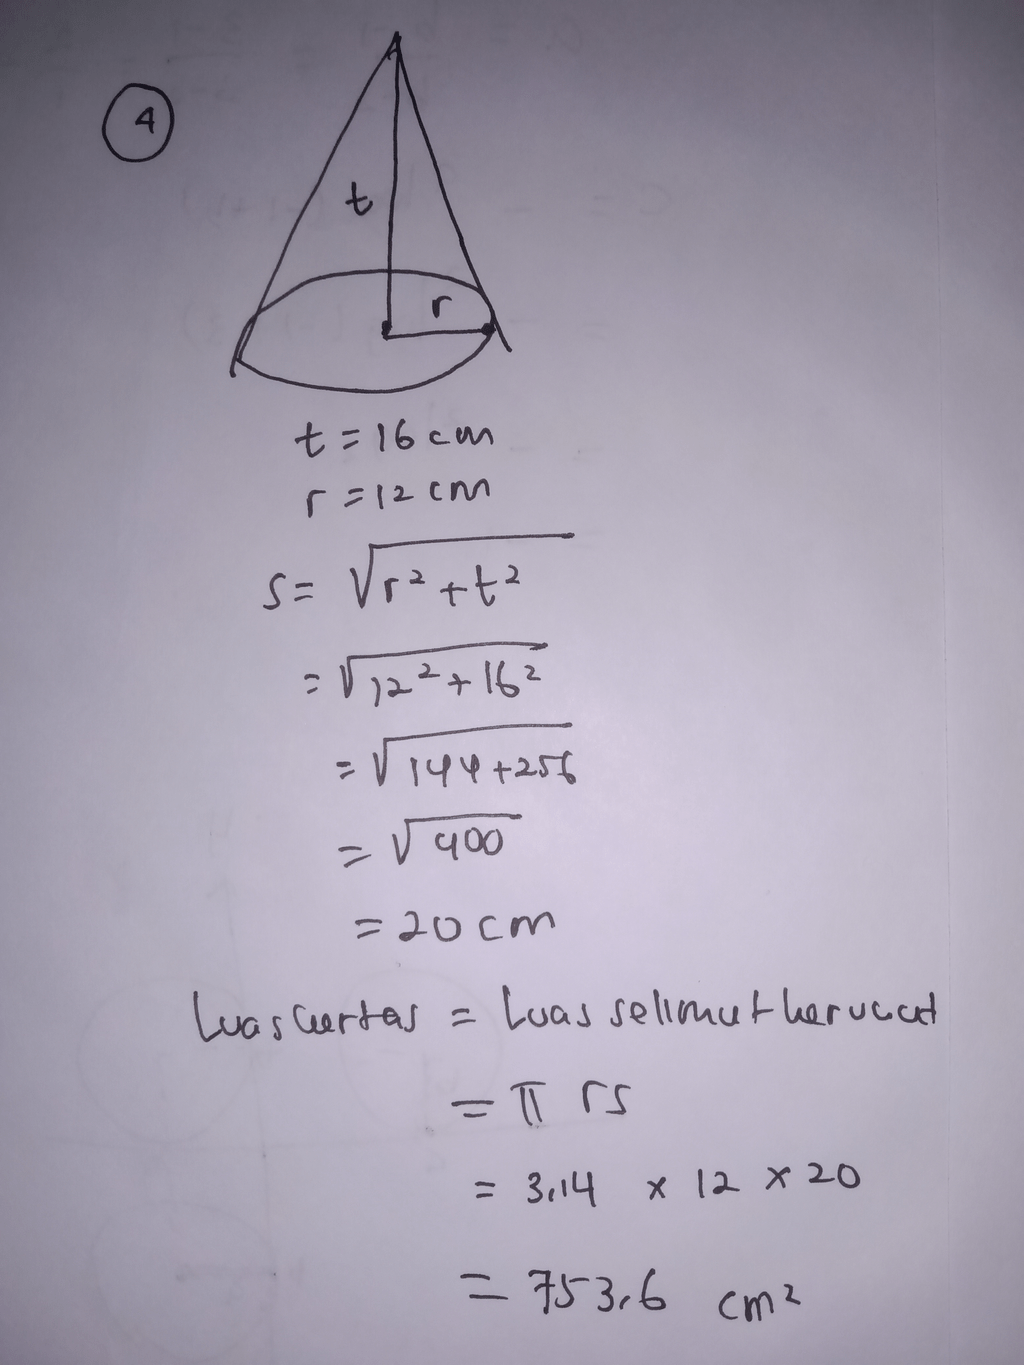 4
t
r
t = 16 cm
r = 12 cm
s = √r² + t²
= √12² + 16²
= √144 + 256
= √400
= 20 cm
Luas kertas = Luas selimut kerucut
= π rs
= 3,14 x 12 x 20
= 753,6 cm²